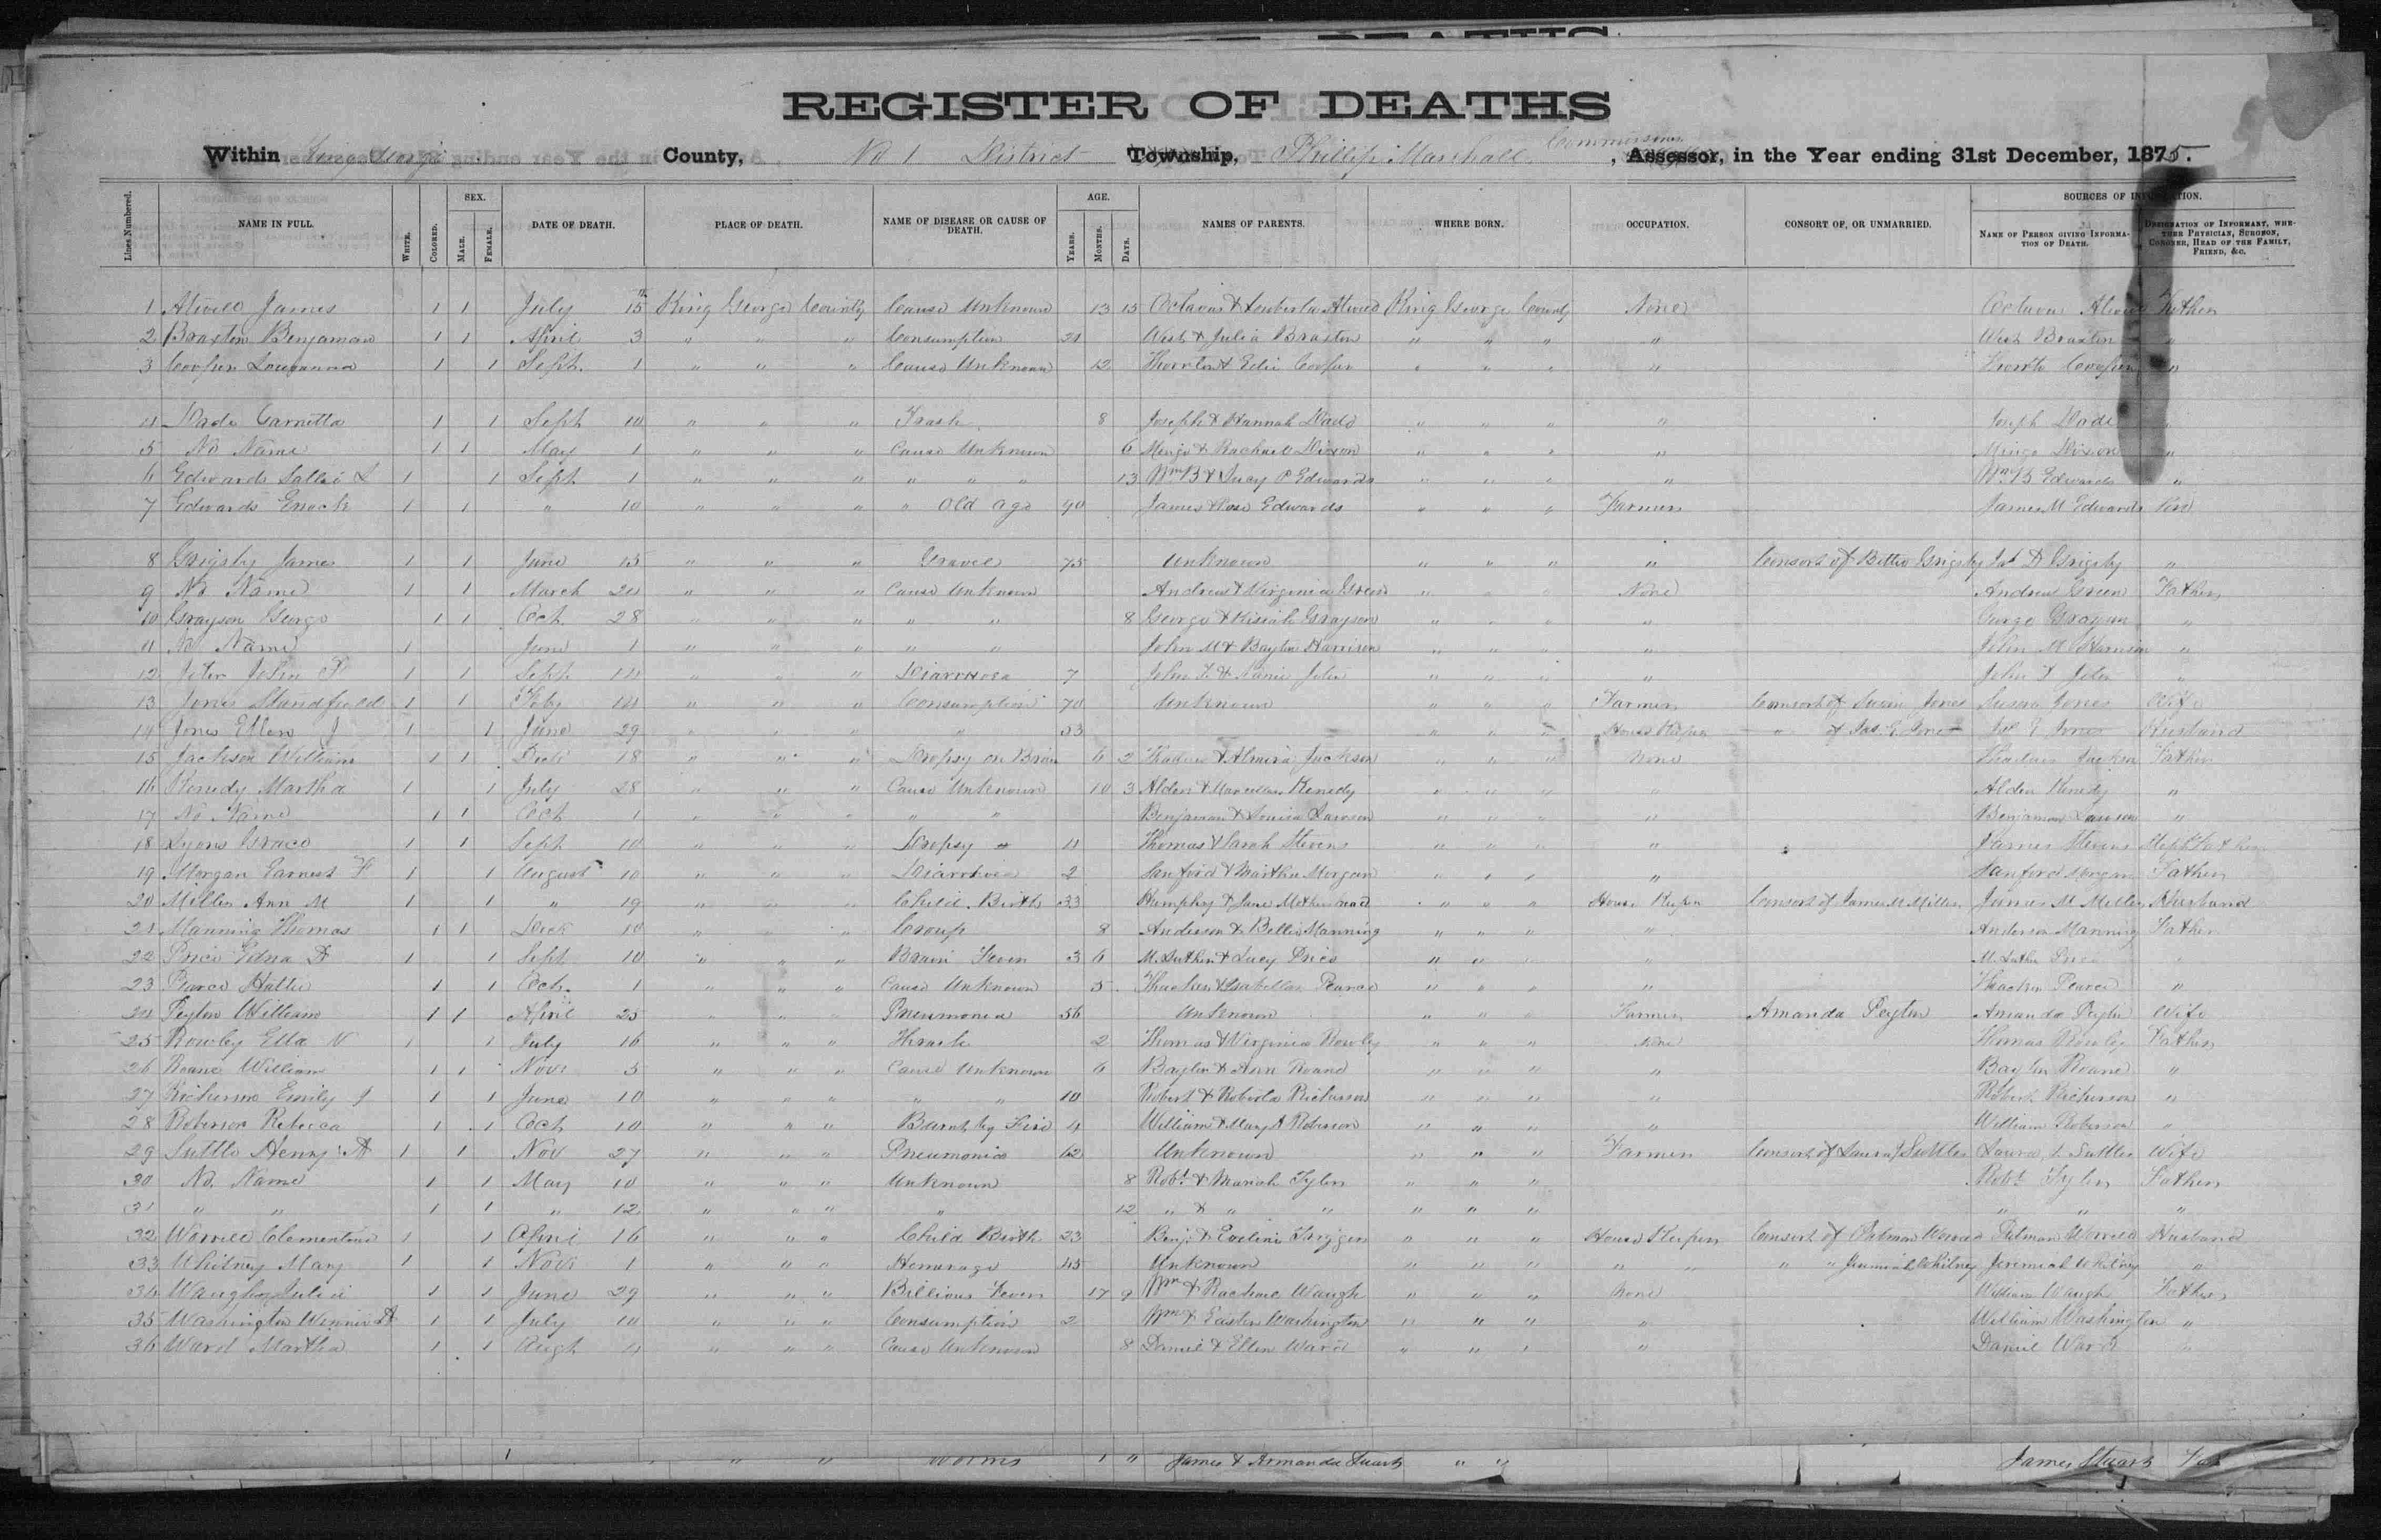 REGISTER OF DEATHS
Within King George County, No 1 District Township, Phillip Marshall Commissioner, Assessor, in the Year ending 31st December, 1875.
Lines Numbered. NAME IN FULL. WHITE. COLORED. SEX. MALE. FEMALE. DATE OF DEATH. PLACE OF DEATH. NAME OF DISEASE OR CAUSE OF DEATH. AGE. YEARS. MONTHS. DAYS. NAMES OF PARENTS. WHERE BORN. OCCUPATION. CONSORT OF, OR UNMARRIED. SOURCES OF INFORMATION. NAME OF PERSON GIVING INFORMATION OF DEATH. DESIGNATION OF INFORMANT, WHETHER PHYSICIAN, SURGEON, CORONER, HEAD OF THE FAMILY, FRIEND, &C.
1 Atwell James 1 1 July 15th King George County Cause Unknown 13 15 Octavus & Atwell King George County None Octavus Atwell Father
2 Braxton Benjaman 1 1 April 3 " " " Consumption 21 West & Julia Braxton " " " " West Braxton "
3 Cooper Louvanna 1 1 Sept. 1 " " " Cause Unknown 12 Thornton & Edie Cooper " " " " Cooper "
4 Dade Garnetta 1 1 Sept 10 " " " Trash 8 Joseph & Hannah Dade " " " " Joseph Dade "
5 No Name 1 1 May 1 " " " Cause Unknown 6 Mingo & Rachael Dixon " " " " Mingo Dixon "
6 Edwards Sallie L 1 1 Sept 1 " " " " " " 13 Wm B & Lucy P Edwards " " " " Wm B Edwards "
7 Edwards Enoch 1 1 " 10 " " " " Old Age 90 James & Rose Edwards " " " Farmer James M Edwards Son
8 Grigsby James 1 1 June 15 " " " Gravel 75 Unknown " " " " Consort of Bettie Grigsby D Grigsby "
9 No Name 1 1 March 20 " " " Cause Unknown Andrew & Virginia Green " " " None Andrew Green Father
10 Grayson George 1 1 Oct. 28 " " " " " 8 George & Kisiah Grayson " " " " George Grayson "
11 No Name 1 June 1 " " " " " John M & Baylor Harrison " " " " John M Harrison "
12 Jeter John F 1 1 Sept 10 " " " Diarrhoea 7 John T & Nannie Jeter " " " " John T Jeter "
13 Jones Standfield 1 1 Feby 10 " " " Consumption 70 Unknown " " " Farmer Consort of Susan Jones Susan Jones Wife
14 Jones Ellen J 1 1 June 29 " " " " 53 " " " House Keeper " of Jas. E. Jones Jas E Jones Husband
15 Jackson William 1 1 Dech 18 " " " Dropsy on Brain 6 2 Thadeus & Almira Jackson " " " None Thadeus Jackson Father
16 Kenedy Martha 1 1 July 28 " " " Cause Unknown 10 3 Alden & Marcellus Kenedy " " " " Alden Kenedy "
17 No Name 1 1 Oct 1 " " " " " Benjaman & Louisa Lawson " " " " Benjaman Lawson "
18 Lyons Grace 1 1 Sept 10 " " " Dropsy 11 Thomas & Sarah Stevens " " " " James Stevens Steph Father
19 Morgan Earnest F 1 1 August 10 " " " Diarrhoea 2 Sanford & Martha Morgan " " " " Sanford Morgan Father
20 Miller Ann M 1 1 " 19 " " " Child Birth 33 Humphry & Jane Mothershead " " " House Keeper Consort of James M Miller James M Miller Husband
21 Manning Thomas 1 1 Dech 10 " " " Croup 8 Anderson & Bettie Manning " " " " Anderson Manning Father
22 Price Edna A 1 1 Sept 10 " " " Brain Fever 3 6 M. Luther & Lucy Price " " " " M. Luther Price "
23 Pearce Hattie 1 1 Oct. 1 " " " Cause Unknown 5 Thacker & Isabella Pearce " " " " Thacker Pearce "
24 Peyton William 1 1 April 25 " " " Pneumonia 56 Unknown " " " Farmer Amanda Peyton Amanda Peyton Wife
25 Rowley Etta N 1 1 July 16 " " " Thrash 2 Thomas & Virginia Rowley " " " None Thomas Rowley Father
26 Roane William 1 1 Nov. 5 " " " Cause Unknown 6 Baylor & Ann Roane " " " " Baylor Roane "
27 Richerson Emily J 1 1 June 10 " " " " " 10 Robert & Roberta Richerson " " " " Robert Richerson "
28 Roberson Rebecca 1 1 Oct 10 " " " Burnt by Fire 4 William & Mary A Roberson " " " " William Roberson "
29 Suttle Henry A 1 1 Nov 27 " " " Pneumonia 62 Unknown " " " Farmer Consort of Laura J Suttles Laura J. Suttles Wife
30 No. Name 1 1 May 10 " " " Unknown 8 Robt. & Mariah Tyler " " " Robt. Tyler Father
31 " " 1 1 " 12 " " " " 12 " & " " " " " " " "
32 Worrell Clementine 1 1 April 16 " " " Child Birth 23 Benj. & Eveline Trigger " " " House Keeper Consort of Pitman Worrell Pitman Worrell Husband
33 Whitney Mary 1 1 Nov. 1 " " " Hemorage 45 Unknown " " " " " " " Jeremiah Whitney Jeremiah Whitney "
34 Waugh Julia 1 1 June 29 " " " Billious Fever 17 9 Wm & Rachael Waugh " " " None William Waugh Father
35 Washington Winnie A 1 1 July 10 " " " Consumption 2 Wm & Easter Washington " " " " William Washington "
36 Ward Martha 1 1 Augt 4 " " " Cause Unknown 8 Daniel & Ellen Ward " " " " Daniel Ward "
1 " " worms 1 " James & Armanda Stuart " " James Stuart